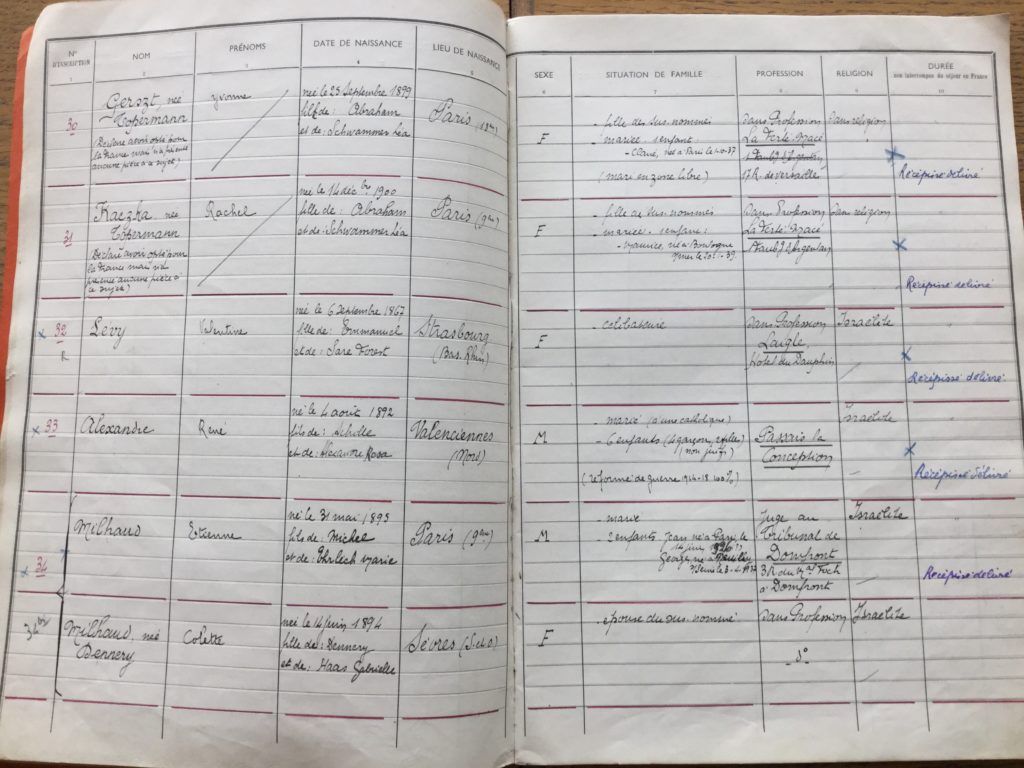 N° D'INSCRIPTION
1
NOM
2
PRÉNOMS
3
DATE DE NAISSANCE
4
LIEU DE NAISSANCE
5
SEXE
6
SITUATION DE FAMILLE
7
PROFESSION
8
RELIGION
9
DURÉE
non interrompue du séjour en France
10
30
Gerszt, née
Topermann
Déclare avoir opté pour
la France mais n'a présenté
aucune pièce à ce sujet)
Yvonne
née le 23 Septembre 1899
fille de: Abraham
et de: Schwammer Léa
Paris
F
- fille des sus. nommés
- mariée. 1 enfant:
(mari en zone libre)
Sans Profession
La Ferté Macé
Sans religion
Récépissé délivré
31
Kaczka, née
Topermann
Déclare avoir opté pour
la France mais n'a
présenté aucune pièce à
ce sujet)
Rachel
née le 14 déc bre 1900
fille de: Abraham
et de: Schwammer Léa
Paris (9ème)
F
- fille des sus. nommés
- mariée. 1 enfant:
- Maurice, né à Boulogne
Sans Profession
La Ferté Macé
Sans religion
Récépissé délivré
32
Lévy
Valentine
née le 6 Septembre 1867
fille de: Emmanuel
et de: Sara Forest
Strasbourg
(Bas. Rhin)
F
- célibataire
Sans Profession
Laigle,
Hôtel du Dauphin
Israélite
Récépissé délivré
33
Alexandre
René
né le 4 août 1892
fils de: Achille
et de: Alexandre Rosa
Valenciennes
(Nord)
M
- marié (à une catholique)
- 6 enfants (4 garçons, 2 filles)
(non juifs)
(réformé de guerre 1914-18 100%)
Passais la
Conception
Israélite
Récépissé délivré
34
Milhaud
Etienne
né le 31 mai 1893
fils de: Michel
et de: Ehrlich Marie
Paris (9ème)
M
- marié
Juge au
Tribunal de
Domfront
à Domfront
Israélite
Récépissé délivré
34 bis
Milhaud, née
Dennery
Colette
née le 14 juin 1894
fille de: Dennery
et de: Haas Gabrielle
Sèvres (S. et O)
F
- épouse du sus. nommé
Sans Profession
- d° -
Israélite